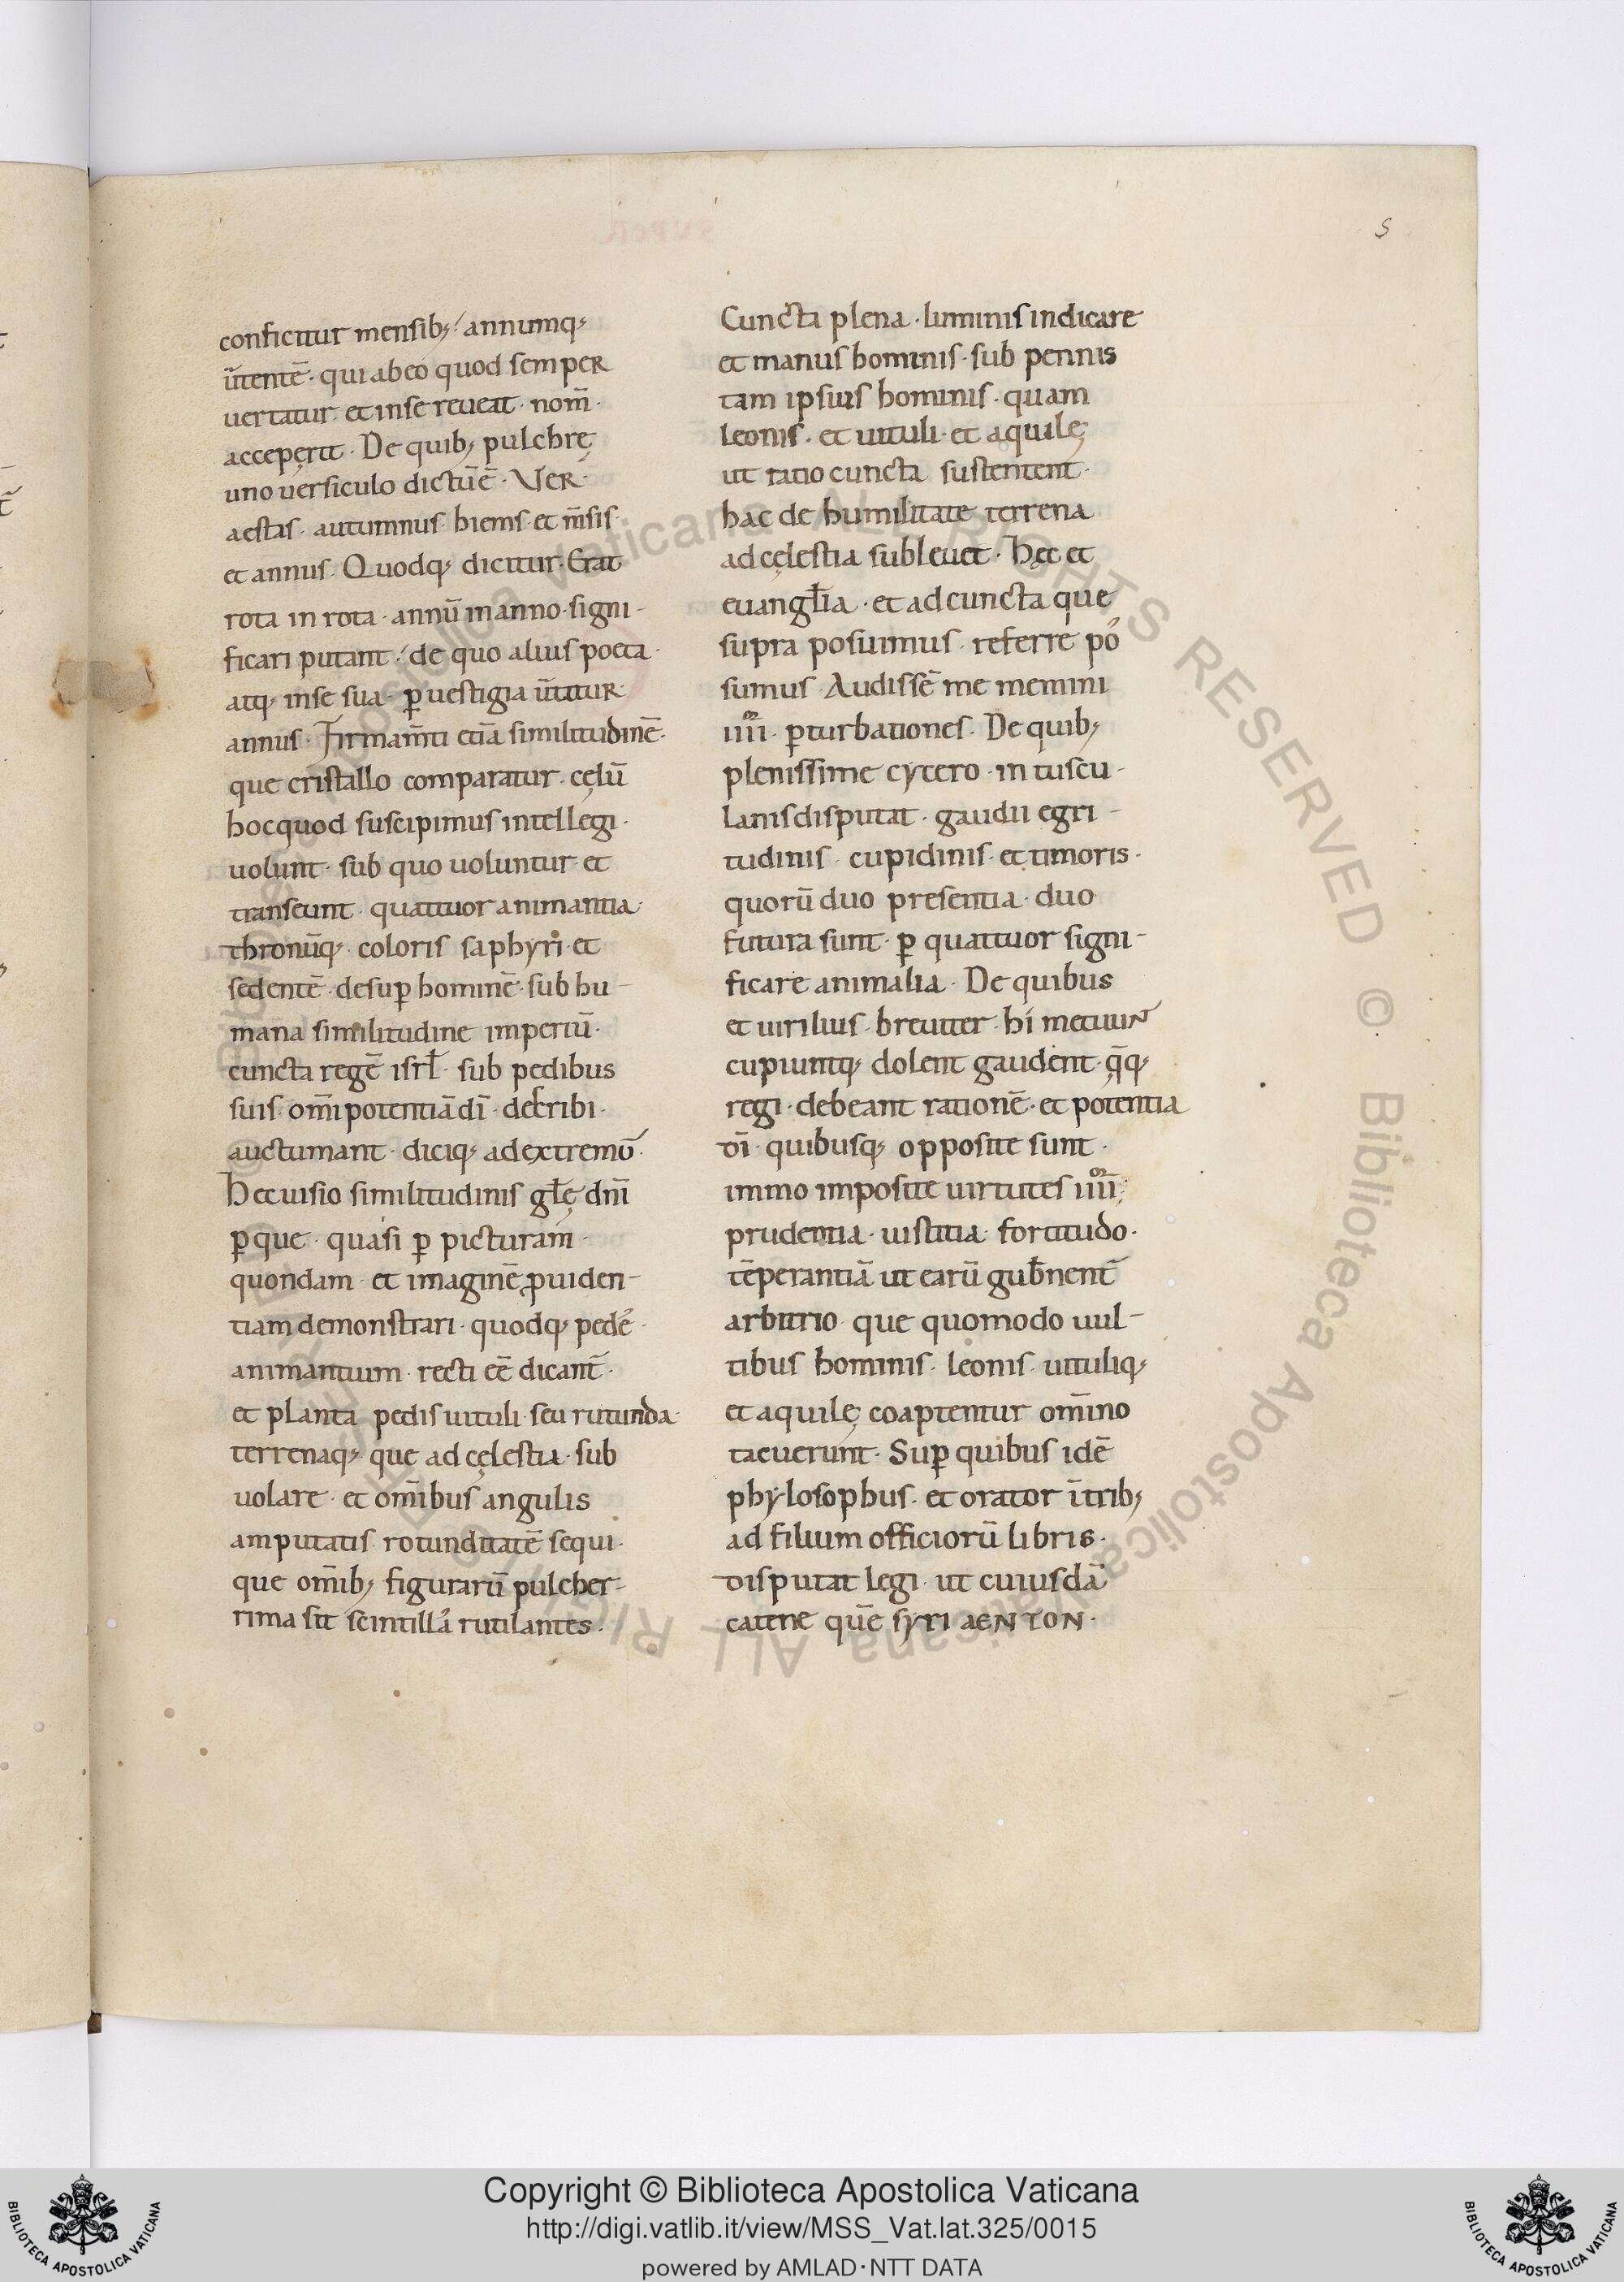 S
conficitur mensib; annumq;
ūtentē · qui ab eo quod semper
vertatur et inse reueat · nom̄ ·
accepęrit · De quib; pulchrę
uno versiculo dictūē · Ver ·
aestas · autumnus · hiems · et m̄sis ·
et annus · Quodq; dicitur · Erat
rota in rota · annū in anno · signi-
ficari putant · de quo alius poeta ·
atq; inse sua · ꝑ uestigia ūtitur
annus · Firmam̄ti etiā similitudinē ·
que cristallo comparatur · cęlū
hocquod suscipimus intellegi ·
uolunt · sub quo uoluntur · et
transeunt · quattuor animantia ·
thronūq; · coloris saphyri · et
sedentē · desuꝑ hominē · sub hu-
mana similitudine imperiū ·
cuncta regē isrł · sub pedibus
suis · om̄ipotentiā dī · describi ·
auctumant · diciq; ad extremū ·
Hec uisio similitudinis głę dn̄i
ꝑque · quasi ꝑ picturam ·
quondam · et imaginē ꝓuiden-
tiam demonstrari · quodq; pedēˢ ·
animantium · recti eē dicant̄ ·
et planta pedis uituli · seu rutunda ·
terrenaq; · que ad cęlestia · sub
uolare · et om̄ibus angulis
amputatis rotunditatē sequi ·
que om̄ib; figurarū pulcher-
rima sit scintillā rutilantes ·
Cuncta plena · luminis indicare
et manus hominis · sub pennis
tam ipsius hominis · quam
leonis · et uituli · et aquilę
ut ratio cuncta sustentent ·
hac de humilitate terrena
ad cęlestia subleuet · Hęc et
euangl̄ia · et ad cuncta que
supra posuimus · referre pos
sumus · Audissē me memini
iiiior · ꝑturbationes · De quib;
plenissime cycero · in tuscu-
lanis disputat · gaudii egri-
tudinis · cupidinis · et timoris ·
quorū duo presentia · duo
futura sunt · ꝑ quattuor signi-
ficare animalia · De quibus
et uirilius · breuiter · hi metuunt
cupiuntq; dolent gaudent · q̄q;
regi · debeant rationē · et potentia
dī · quibusq; opposite sunt ·
immo imposite uirtutes iiiior ;
prudentia · iustitia · fortitudo ·
tēperantiā ut earū gub̄nent̄
arbitrio · que quomodo uul-
tibus hominis · leonis · uituliq;
et aquilę coaptentur om̄ino
tacuerunt · Suꝑ quibus idē
phylosophus · et orator ī trib;
ad filium officiorū libris ·
disputat legi · ut cuiusdā
catene quē syri aenton ·
Copyright © Biblioteca Apostolica Vaticana
http://digi.vatlib.it/view/MSS_Vat.lat.325/0015
powered by AMLAD·NTT DATA
BIBLIOTECA APOSTOLICA VATICANA
BIBLIOTECA APOSTOLICA VATICANA